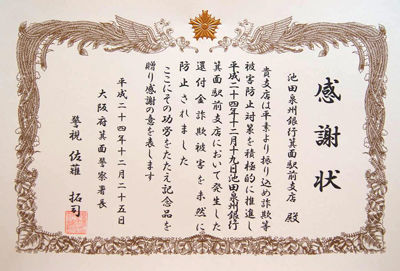 感謝状
池田泉州銀行箕面駅前支店 殿
貴支店は平素より振り込め詐欺等
被害防止対策を積極的に推進し
平成二十四年十二月十九日池田泉州銀行
箕面駅前支店において発生した
還付金詐欺被害を未然に
防止されました
ここにその功労をたたえ記念品を
贈り感謝の意を表します
平成二十四年十二月二十五日
大阪府箕面警察署長
警視 佐藤 拓司